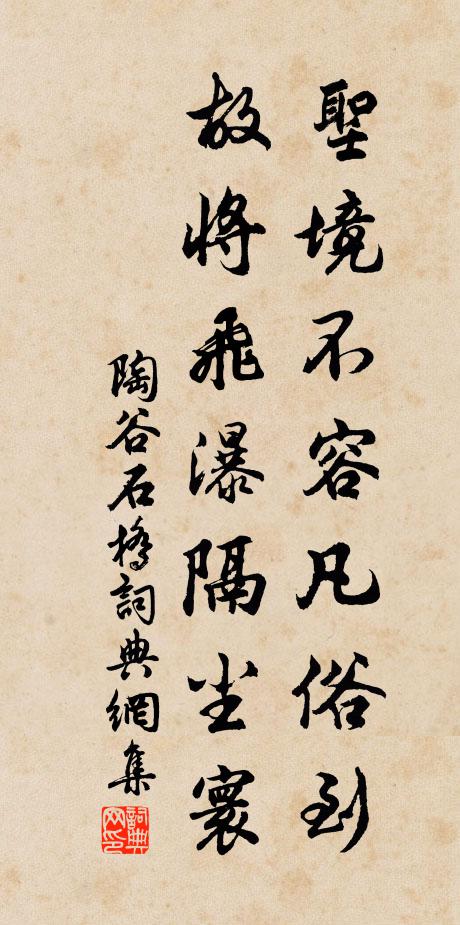 聖境不容凡俗到
故將飛瀑隔尘寰
陶谷石橋詞典網集
詞典
网印